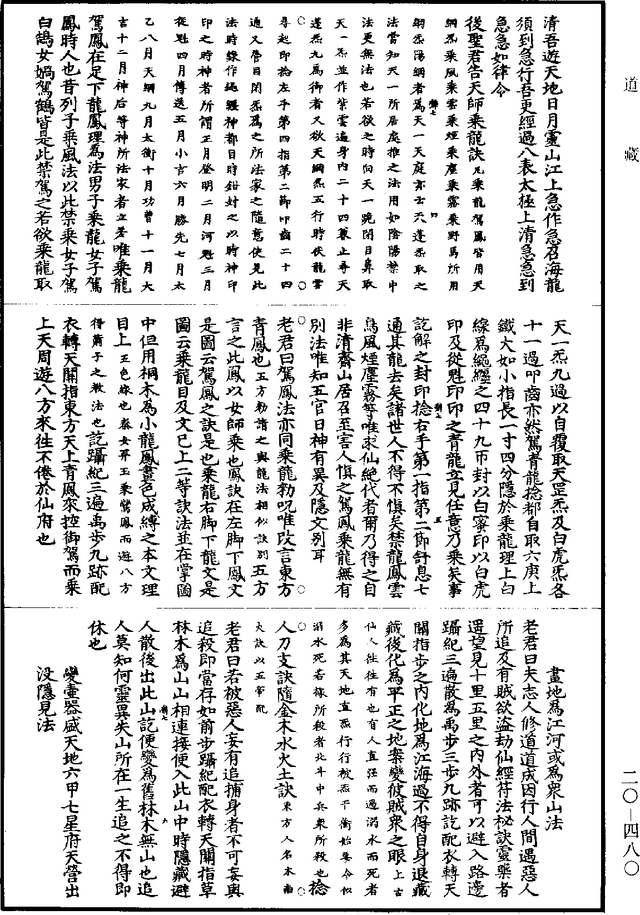 道藏
清吾遊天地日月靈山江上急作急召海龍
須到急行吾更經過八表太極上清急急到
急急如律令
後聖君告天師乘龍訣凡乘龍駕鳳皆用天
網炁乘風乘雲乘煙乘塵乘霧乘野馬所用
法當知天一所居處推之法用如陰陽禁中
法更無法也若欲之時向天一晚閉目鼻取
天一炁並作紫雲遍身內二十四兼止尋天
蓬炁九為御者又欲天網炁五行時伏龍雲
尋起印捻左手第四指第二節叩齒二十四
印之時神者所謂正月登明二月河魁三月
從魁四月傳送五月小吉六月勝先七月太
乙八月天網九月太衝十月功曹十一月大
吉十二月神后等神所法家者立若唯乘龍
駕鳳在足下龍鳳理為法男子乘龍女子駕
鳳時人也昔列子乘風法以此禁乘女子駕
白鵠女媧駕鶴皆是此禁駕之若欲乘龍取
天一炁九過以自覆取天罡炁及白虎炁各
十一過叩齒亦然駕青龍捻都自取六庚上
鐵大如小指長一寸四分隱於乘龍理上白
線為繩纏之四十九帀封以白蜜印以白虎
印及從魁印印之青龍立見任意乃乘矣事
訖解之封印捻右手第一指第二節舒息七
通其龍去矣諸世人不得不慎矣禁龍鳳雲
鳥風煙塵霧等唯求仙絕代者爾乃得之自
非清齋山居召至害人慎之駕鳳乘龍無有
別法唯知五官日神有異及隱文別耳
老君曰駕鳳法亦同乘龍勑呪唯改言東方
青鳳也五方勑語之與龍法相似訣別五方
言之此鳳以女師乘也鳳訣在左脚下鳳文
是圖云駕鳳之訣是也乘龍右脚下龍文是
圖云乘龍目及文已上二等訣法並在掌圖
中但用桐木為小龍鳳畫色成縛之本文理
目上五色線也秦女弄玉乘鸞鳳而遊八方
得簫子之教法也訖躡紀三遍禹步九跡配
衣轉天關指東方天上青鳳來控御駕而乘
上天周遊八方來往不倦於仙府也
畫地為江河或為眾山法
老君曰夫志人修道道成因行人間遇惡人
所追及有賊欲盜劫仙經符法秘訣靈藥者
遥望見十里五里之內外者可以避入路邊
躡紀三遍散為禹步三步九跡訖配衣轉天
關指步之內化地為江海過不得自身退藏
藏後化為平正之地案變彼賊眾之眼上古
仙人往往有也有人直强而過溺水而死者
多為其天地直炁行行被炁干衝始集令似
溺水死若橡所殺者北斗中兵眾所殺也捻
人刀支訣隨金木水火土訣東方人名木南
火訣以五帝配
老君曰若被惡人妄有追捕身者不可妄與
追殺即當存如前步躡紀配衣轉天關指草
林木為山山相連接便入此山中時隱藏避
人散後出此山訖便變為舊林木無山也追
人莫知何靈異失山所在一生追之不得即
休也
變壷器盛天地六甲七星府天營出
沒隱見法
二〇－四八〇